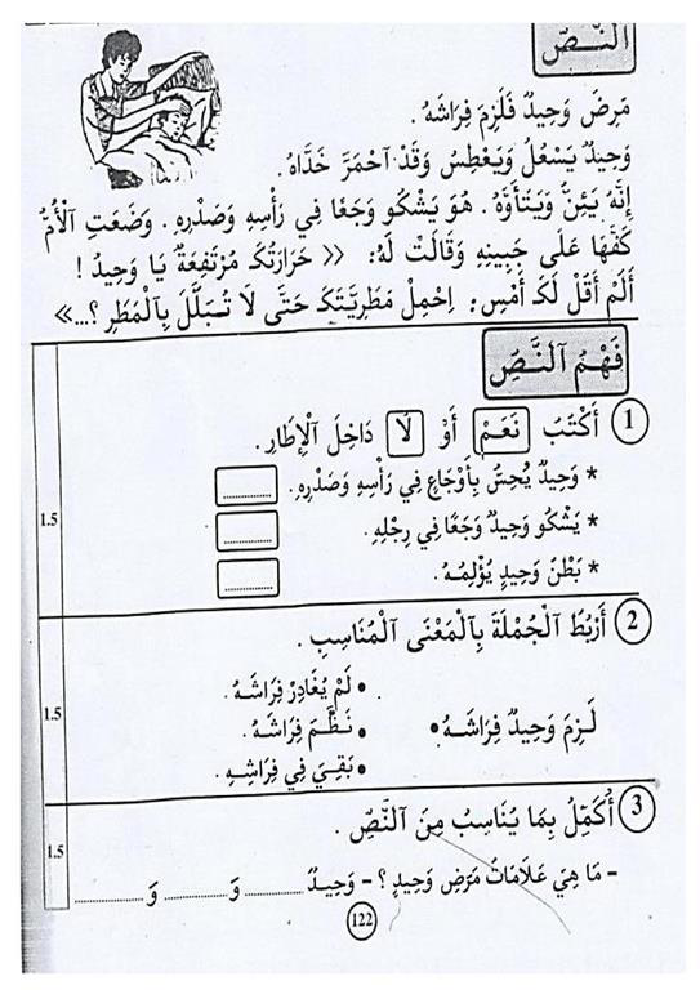 النَّصّ
مَرِضَ وَحِيدٌ فَلَزِمَ فِرَاشَهُ.
وَحِيدٌ يَسْعُلُ وَيَعْطِسُ وَقَدْ آحْمَرَّ خَدَّاهُ.
إِنَّهُ يَئِنُّ وَيَتَأَوَّهُ. هُوَ يَشْكُو وَجَعًا فِي رَأْسِهِ وَصَدْرِهِ. وَضَعَتِ آلْأُمُّ
كَفَّهَا عَلَى جَبِينِهِ وَقَالَتْ لَهُ: «حَرَارَتُكَ مُرْتَفِعَةٌ يَا وَحِيدُ!
أَلَمْ أَقُلْ لَكَ أَمْسِ: اِحْمِلْ مَطَرِيَّتَكَ حَتَّى لَا تُبَلَّلَ بِآلْمَطَرِ؟...»
فَهْمُ آلنَّصِّ
1 أَكْتُبُ نَعَمْ أَوْ لَا دَاخِلَ آلْإِطَارِ.
* وَحِيدٌ يُحِسُّ بِأَوْجَاعٍ فِي رَأْسِهِ وَصَدْرِهِ. ..........
* يَشْكُو وَحِيدٌ وَجَعًا فِي رِجْلِهِ. ..........
1.5
* بَطْنُ وَحِيدٍ يُؤْلِمُهُ. ..........
2 أَرْبُطُ آلْجُمْلَةَ بِآلْمَعْنَى آلْمُنَاسِبِ.
• لَمْ يُغَادِرْ فِرَاشَهُ.
لَزِمَ وَحِيدٌ فِرَاشَهُ • • نَظَّمَ فِرَاشَهُ.
1.5
• بَقِيَ فِي فِرَاشِهِ.
3 أُكَمِّلُ بِمَا يُنَاسِبُ مِنَ آلنَّصِّ.
1.5
- مَا هِيَ عَلَامَاتُ مَرَضِ وَحِيدٍ؟ - وَحِيدٌ .......... وَ .......... وَ ..........
122